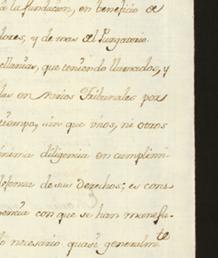 la fundacion, en beneficio de
dores, y de mas del Purgatorio.
ellanias, que teniendo llamados, y
las en varios Tribunales por
tiempo, sin que vnos, ni otros
nima diligencia en cumplimi-
defensa de sus derechos; es cons-
encia con que se han manifes-
lo necesario quasi generalmte